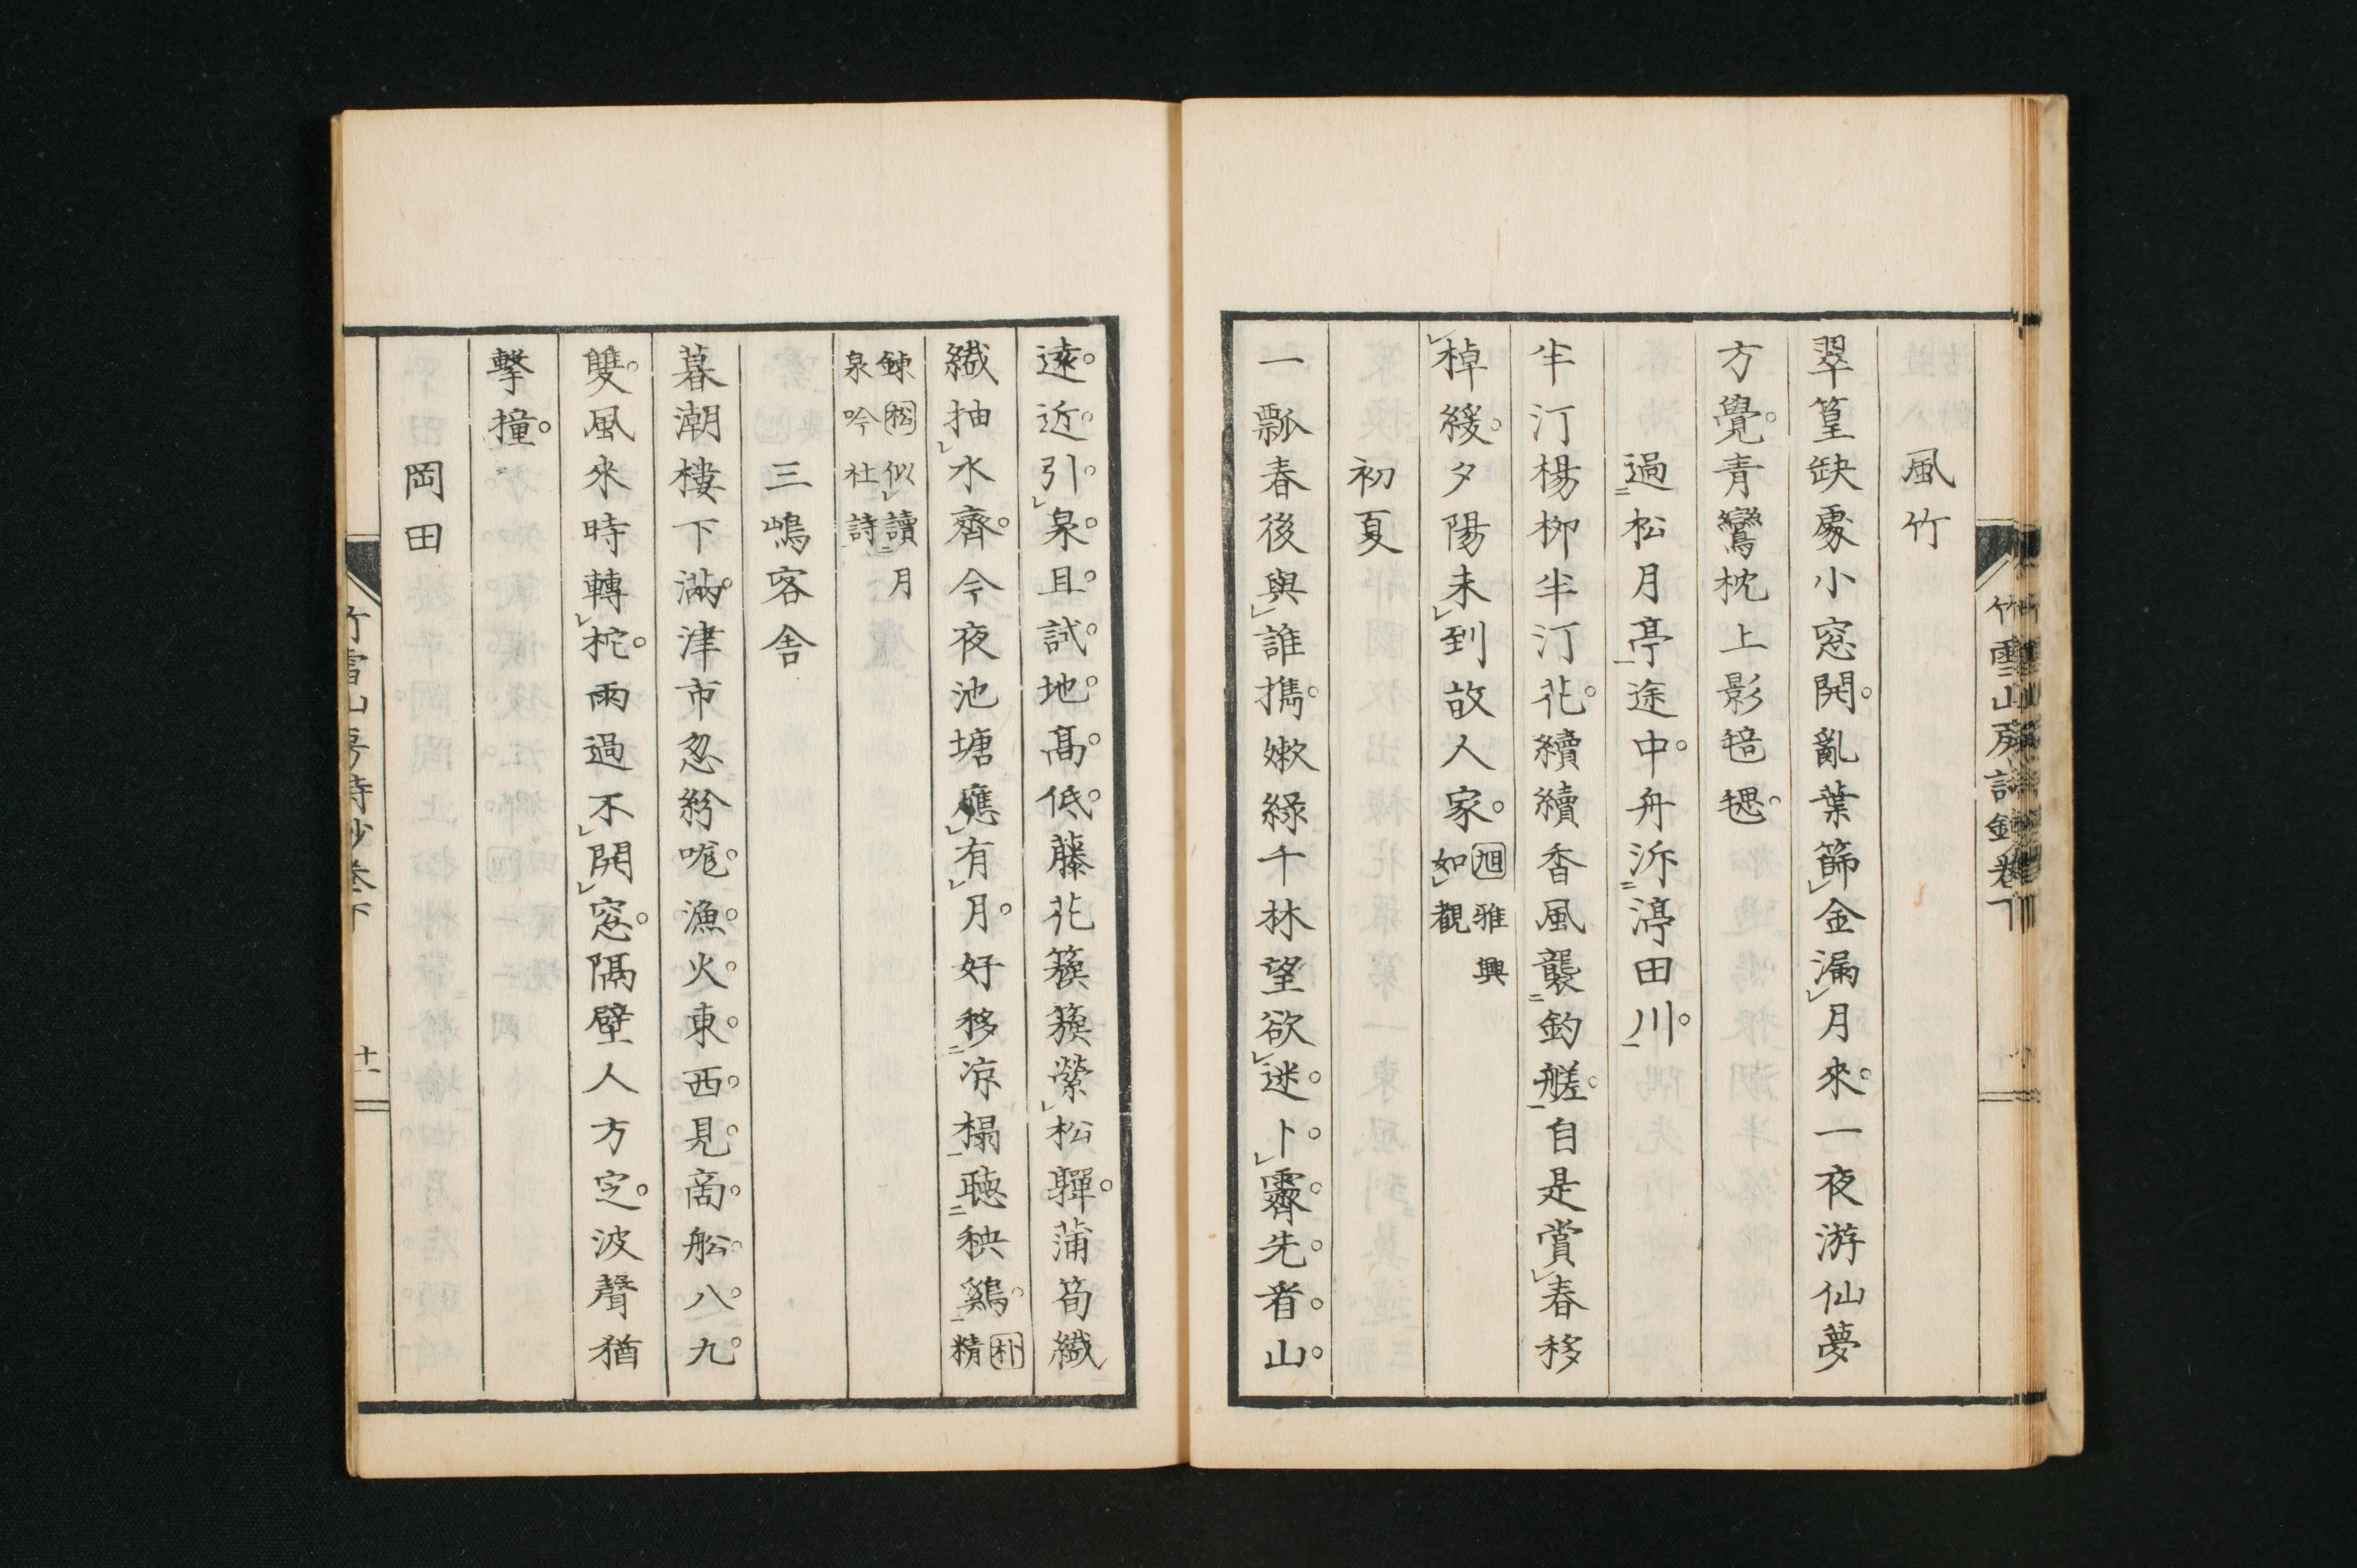 風竹
翠篁缺處小窓開。亂葉篩金漏月來。一夜游仙夢
方覺。青鸞枕上影毰毸。
過松月亭途中。舟泝渟田川。
半汀楊柳半汀花。續續香風襲釣艖。自是賞春移
棹緩。夕陽未到故人家。旭雅興
如觀
初夏
一瓢春後與誰携。嫩綠千林望欲迷。卜。霽。先。者。山。
遠。近。引。泉。且。試。地。高。低。藤花簇簇縈松嚲。蒲筍纖
纖抽水齊。今夜池塘應有月。好移凉榻聽秧鷄。朴精
錬松似讀月
泉吟社詩
三嶋客舍
暮潮樓下滿。津市忽紛咙。漁。火。東。西。見。商。船。八。九。
雙。風來時轉柁。雨過不開窓。隔壁人方定。波聲猶
擊撞。
岡田
竹雪山房詩鈔卷下
十一